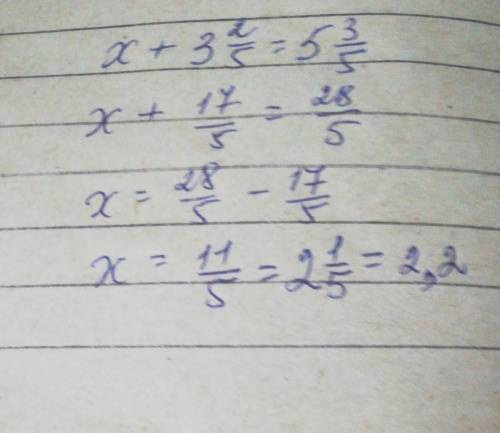 x + 3 2/5 = 5 3/5
x + 17/5 = 28/5
x = 28/5 - 17/5
x = 11/5 = 2 1/5 = 2,2